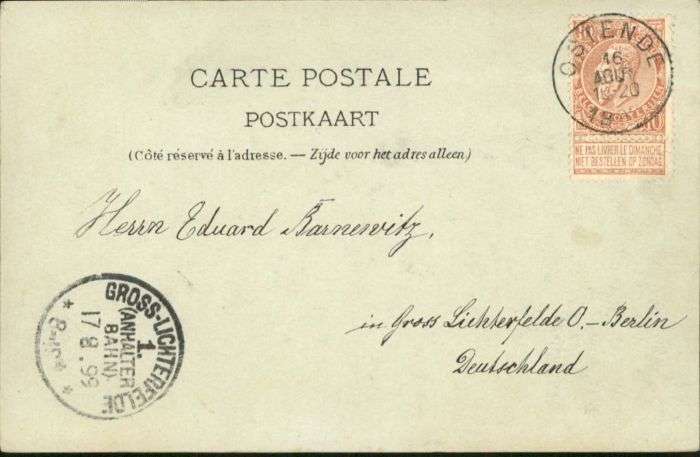 OSTENDE
16
AOUT
18
10
NE PAS LIVRER LE DIMANCHE
NIET BESTELLEN OP ZONDAG
CARTE POSTALE
POSTKAART
(Côté réservé à l'adresse. — Zijde voor het adres alleen.)
Herrn Eduard Barnewitz,
in Gross Lichterfelde O. – Berlin
Deutschland
GROSS-LICHTERFELDE
1.
(ANHALTER
BAHN).
17.8.99